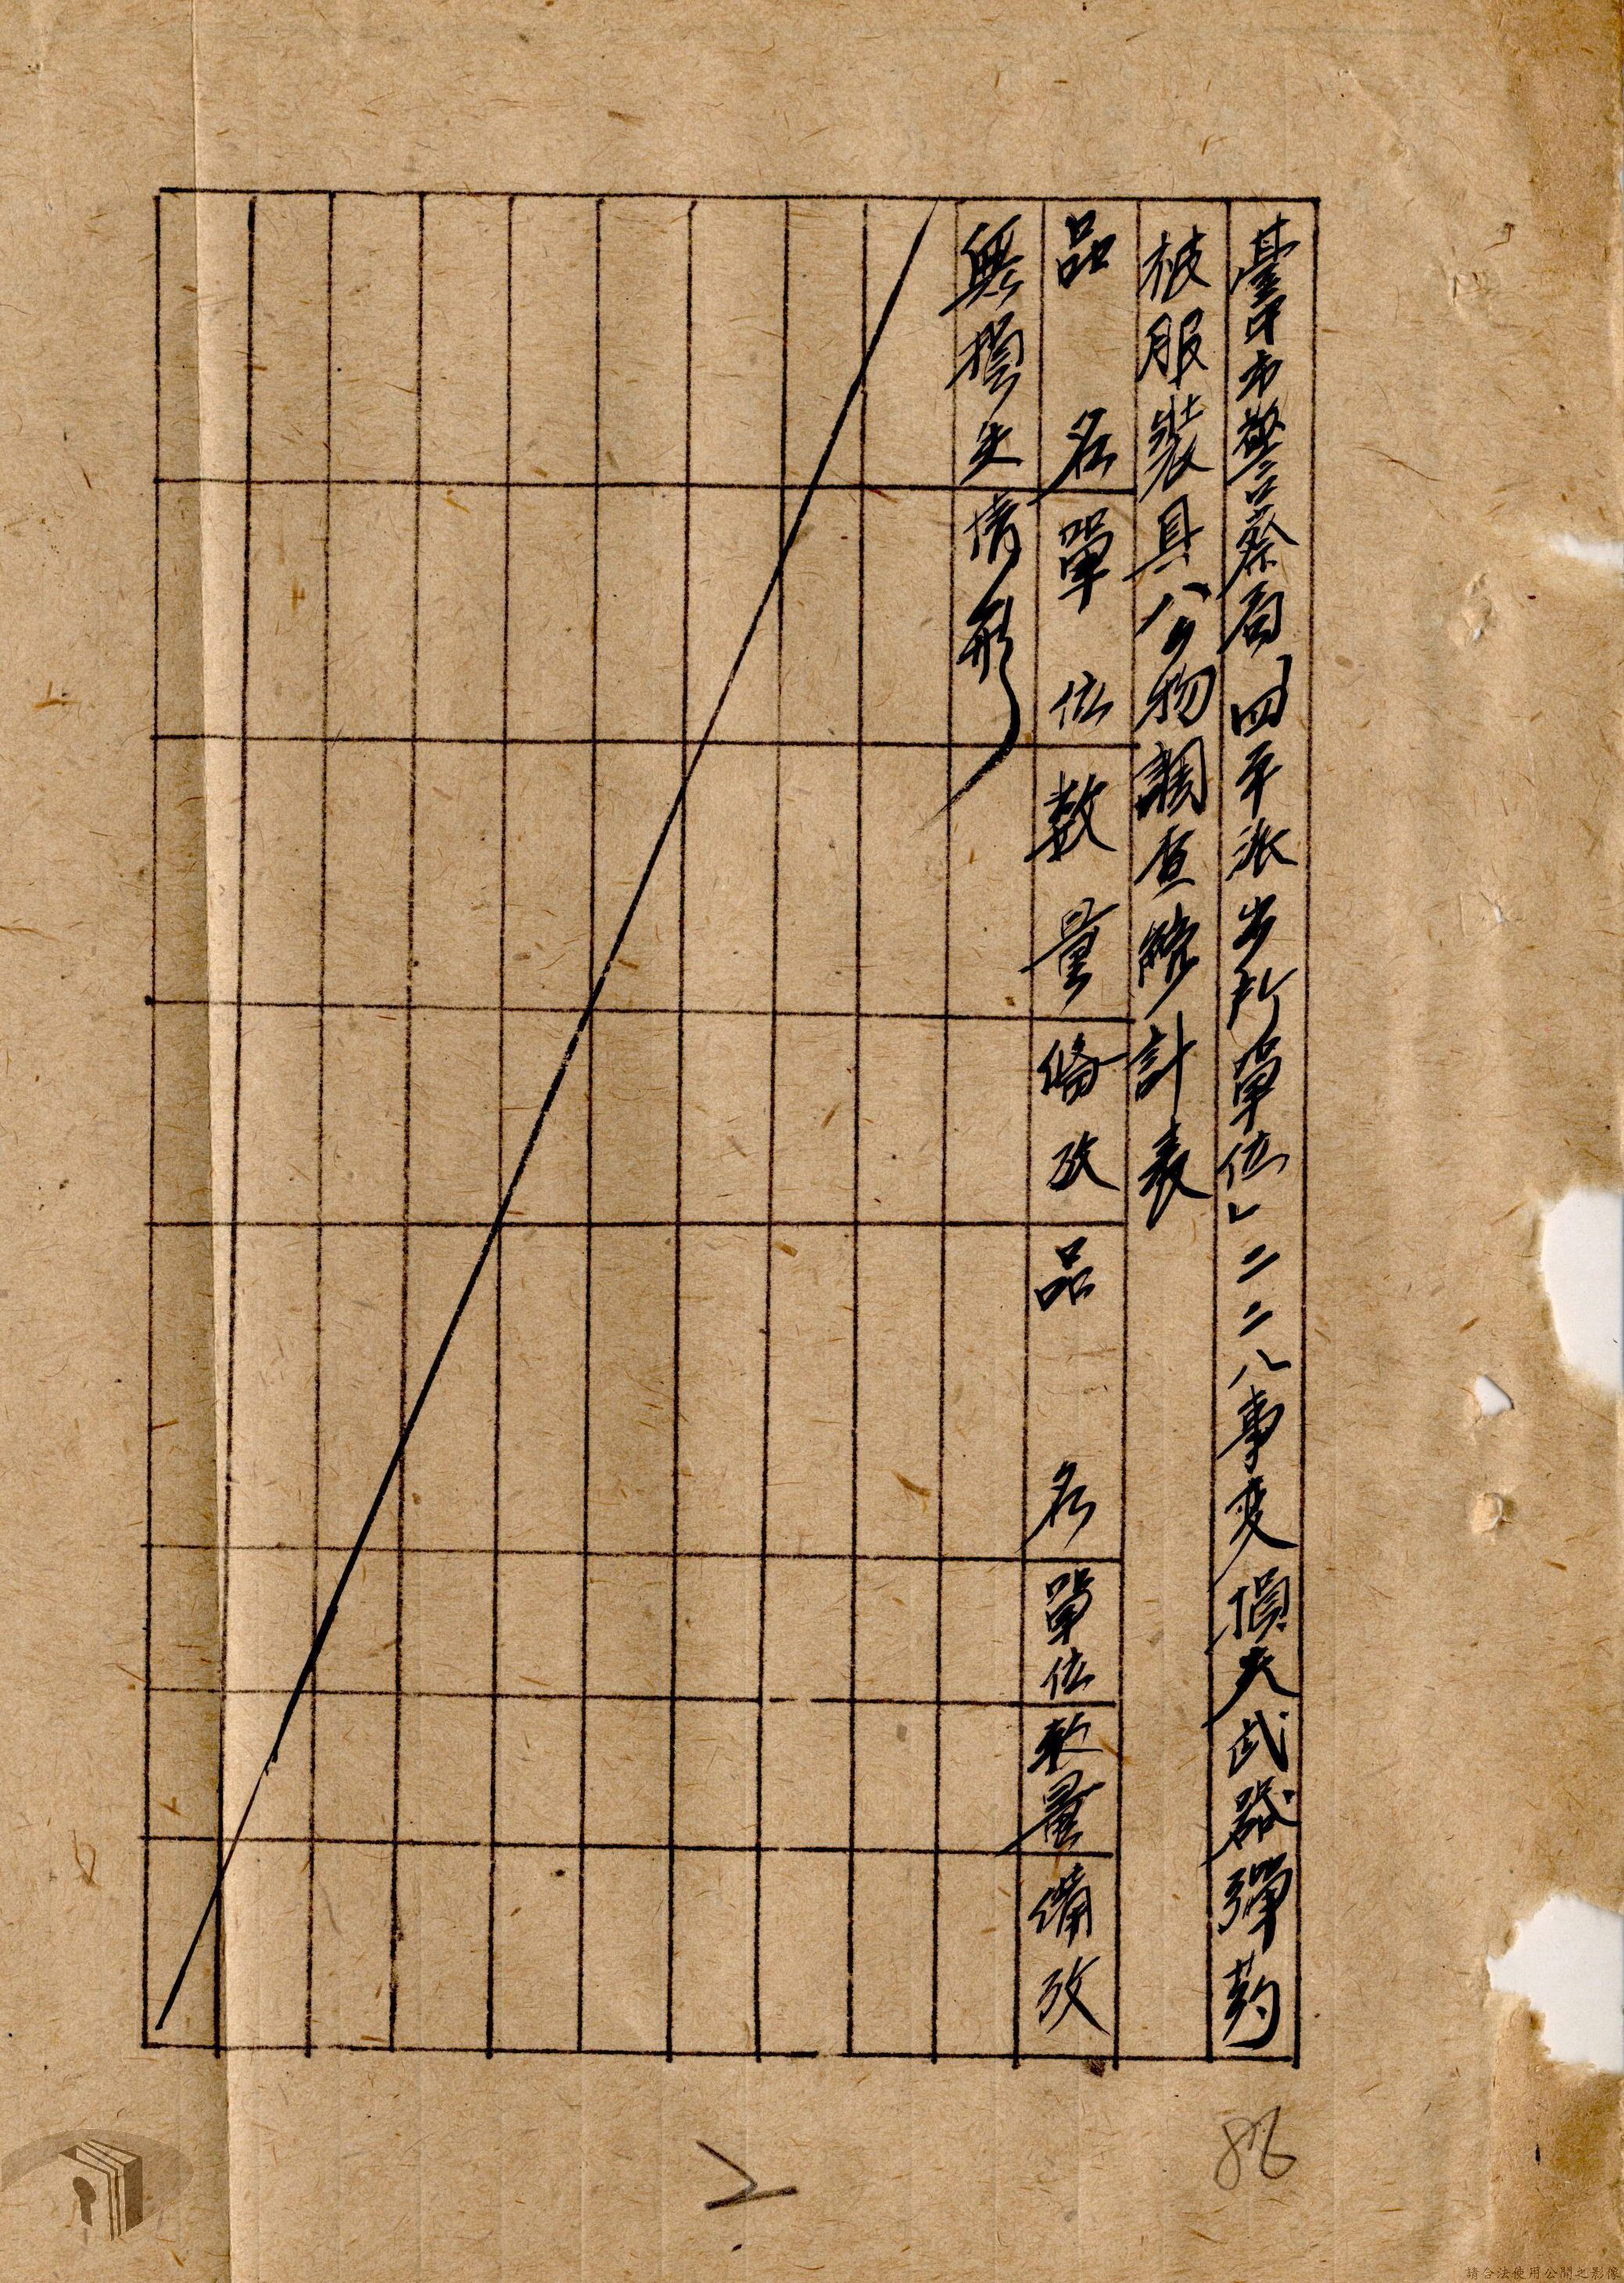 臺中市警察局「四平派出所單位」二二八事变損失武器彈药
被服裝具公物調查總計表
品名 單位 数量 俻攷 品名 單位 数量 備攷
無損失情形
88
請合法使用公開之影像